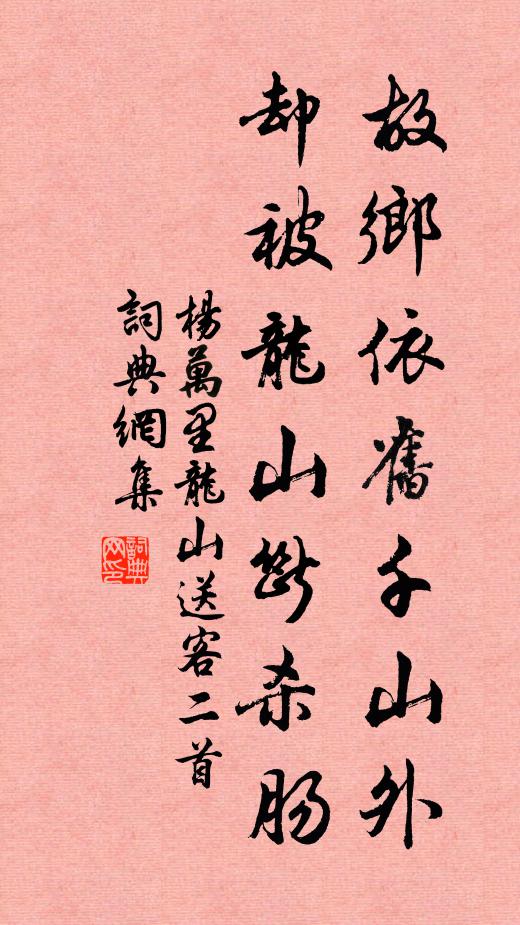 故鄉依舊千山外
却被龍山斷杀肠
楊萬里龍山送客二首
詞典網集
詞典网印